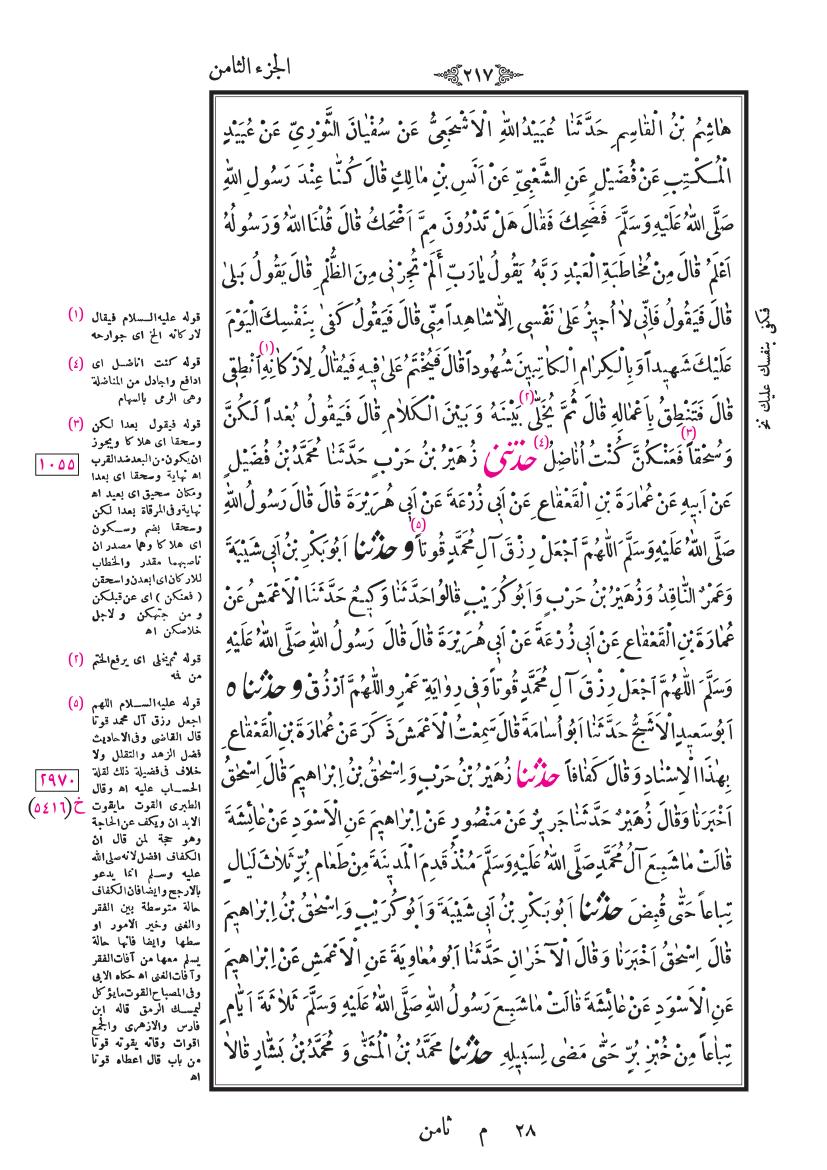 الجزء الثامن
٢١٧
هَاشِمُ بْنُ الْقَاسِمِ حَدَّثَنَا عُبَيْدُاللّٰهِ الْاَشْجَعِىُّ عَنْ سُفْيَانَ الثَّوْرِىِّ عَنْ عُبَيْدٍ
الْمُكْتِبِ عَنْ فُضَيْلٍ عَنِ الشَّعْبِىِّ عَنْ اَنَسِ بْنِ مَالِكٍ قَالَ كُنَّا عِنْدَ رَسُولِ اللّٰهِ
صَلَّى اللّٰهُ عَلَيْهِ وَسَلَّمَ فَضَحِكَ فَقَالَ هَلْ تَدْرُونَ مِمَّ اَضْحَكُ قَالَ قُلْنَا اللّٰهُ وَرَسُولُهُ
اَعْلَمُ قَالَ مِنْ مُخَاطَبَةِ الْعَبْدِ رَبَّهُ يَقُولُ يَارَبِّ أَلَمْ تُجِرْنِى مِنَ الظُّلْمِ قَالَ يَقُولُ بَلىٰ
قَالَ فَيَقُولُ فَاِنِّى لَا اُجِيزُ عَلىٰ نَفْسِى اِلَّا شَاهِداً مِنِّى قَالَ فَيَقُولُ كَفىٰ بِنَفْسِكَ الْيَوْمَ
عَلَيْكَ شَهِيداً وَبِالْكِرَامِ الْكَاتِبِينَ شُهُوداً قَالَ فَيُخْتَمُ عَلىٰ فِيهِ فَيُقَالُ لِاَرْكَانِهِ (١) اَنْطِقِى
قَالَ فَتَنْطِقُ بِاَعْمَالِهِ قَالَ ثُمَّ يُخَلّٰى (٢) بَيْنَهُ وَبَيْنَ الْكَلَامِ قَالَ فَيَقُولُ بُعْداً لَكُنَّ
وَسُحْقاً (٣) فَعَنْكُنَّ كُنْتُ اُنَاضِلُ (٤) حَدَّثَنِى زُهَيْرُ بْنُ حَرْبٍ حَدَّثَنَا مُحَمَّدُ بْنُ فُضَيْلٍ
عَنْ اَبِيهِ عَنْ عُمَارَةَ بْنِ الْقَعْقَاعِ عَنْ اَبِى زُرْعَةَ عَنْ اَبِى هُرَيْرَةَ قَالَ قَالَ رَسُولُ اللّٰهِ
صَلَّى اللّٰهُ عَلَيْهِ وَسَلَّمَ اَللّٰهُمَّ اجْعَلْ رِزْقَ آلِ مُحَمَّدٍ قُوتاً (٥) وَ حَدَّثَنَا اَبُو بَكْرِ بْنُ اَبِى شَيْبَةَ
وَعَمْرٌو النَّاقِدُ وَزُهَيْرُ بْنُ حَرْبٍ وَاَبُو كُرَيْبٍ قَالُوا حَدَّثَنَا وَكِيعٌ حَدَّثَنَا الْاَعْمَشُ عَنْ
عُمَارَةَ بْنِ الْقَعْقَاعِ عَنْ اَبِى زُرْعَةَ عَنْ اَبِى هُرَيْرَةَ قَالَ قَالَ رَسُولُ اللّٰهِ صَلَّى اللّٰهُ عَلَيْهِ
وَسَلَّمَ اَللّٰهُمَّ اجْعَلْ رِزْقَ آلِ مُحَمَّدٍ قُوتاً وَفِى رِوَايَةِ عَمْرٍو اَللّٰهُمَّ اَرْزُقْ وَ حَدَّثَنَا ٥
اَبُو سَعِيدٍ الْاَشَجُّ حَدَّثَنَا اَبُو اُسَامَةَ قَالَ سَمِعْتُ الْاَعْمَشَ ذَكَرَ عَنْ عُمَارَةَ بْنِ الْقَعْقَاعِ
بِهٰذَا الْاِسْنَادِ وَقَالَ كَفَافاً حَدَّثَنَا زُهَيْرُ بْنُ حَرْبٍ وَاِسْحٰقُ بْنُ اِبْرَاهِيمَ قَالَ اِسْحٰقُ
اَخْبَرَنَا وَقَالَ زُهَيْرٌ حَدَّثَنَا جَرِيرٌ عَنْ مَنْصُورٍ عَنْ اِبْرَاهِيمَ عَنِ الْاَسْوَدِ عَنْ عَائِشَةَ
قَالَتْ مَا شَبِعَ آلُ مُحَمَّدٍ صَلَّى اللّٰهُ عَلَيْهِ وَسَلَّمَ مُنْذُ قَدِمَ الْمَدِينَةَ مِنْ طَعَامِ بُرٍّ ثَلَاثَ لَيَالٍ
تِبَاعاً حَتّٰى قُبِضَ حَدَّثَنَا اَبُو بَكْرِ بْنُ اَبِى شَيْبَةَ وَاَبُو كُرَيْبٍ وَاِسْحٰقُ بْنُ اِبْرَاهِيمَ
قَالَ اِسْحٰقُ اَخْبَرَنَا وَقَالَ الْآخَرَانِ حَدَّثَنَا اَبُو مُعَاوِيَةَ عَنِ الْاَعْمَشِ عَنْ اِبْرَاهِيمَ
عَنِ الْاَسْوَدِ عَنْ عَائِشَةَ قَالَتْ مَا شَبِعَ رَسُولُ اللّٰهِ صَلَّى اللّٰهُ عَلَيْهِ وَسَلَّمَ ثَلَاثَةَ اَيَّامٍ
تِبَاعاً مِنْ خُبْزِ بُرٍّ حَتّٰى مَضٰى لِسَبِيلِهِ حَدَّثَنَا مُحَمَّدُ بْنُ الْمُثَنّٰى وَ مُحَمَّدُ بْنُ بَشَّارٍ قَالَا
فكفى بنفسك عليك نخ
(١) قوله عليه السلام فيقال
لاركانه الخ اى جوارحه
(٤) قوله كنت اناضل اى
ادافع واجادل من المناضلة
وهى الرمى بالسهام
(٣) قوله فيقول بعدا لكن
وسحقا اى هلاكا ويجوز
ان يكون من البعد ضد القرب
اه نهاية وسحقا اى بعدا
ومكان سحيق اى بعيد اه
نهاية وفى المرقاة بعدا لكن
وسحقا بضم وسكون
اى هلاكا وهما مصدران
ناصبهما مقدر والخطاب
للاركان اى ابعدن واسحقن
( فعنكن ) اى عن قبلكن
ومن جهتكن ولاجل
خلاصكن اه
(٢) قوله ثم يخلى اى يرفع الختم
من فمه
(٥) قوله عليه السلام اللهم
اجعل رزق آل محمد قوتا
قال القاضى وفى الاحاديث
فضل الزهد والتقلل ولا
خلاف فى فضيلة ذلك لقلة
الحساب عليه اه وقال
الطبرى القوت مايقوت
الابدان ويكف عن الحاجة
وهو حجة لمن قال ان
الكفاف افضل لانه صلى الله
عليه وسلم انما يدعو
بالارجح وايضا فان الكفاف
حالة متوسطة بين الفقر
والغنى وخير الامور او
سطها وايضا فانها حالة
يسلم معها من آفات الفقر
وآفات الغنى اه حكاه الابى
وفى المصباح القوت مايؤكل
ليمسك الرمق قاله ابن
فارس والازهرى والجمع
اقوات وقاته يقوته قوتا
من باب قال اعطاه قوتا
اه
١٠٥٥
٢٩٧٠
خ (٥٤١٦)
٢٨ م ثامن